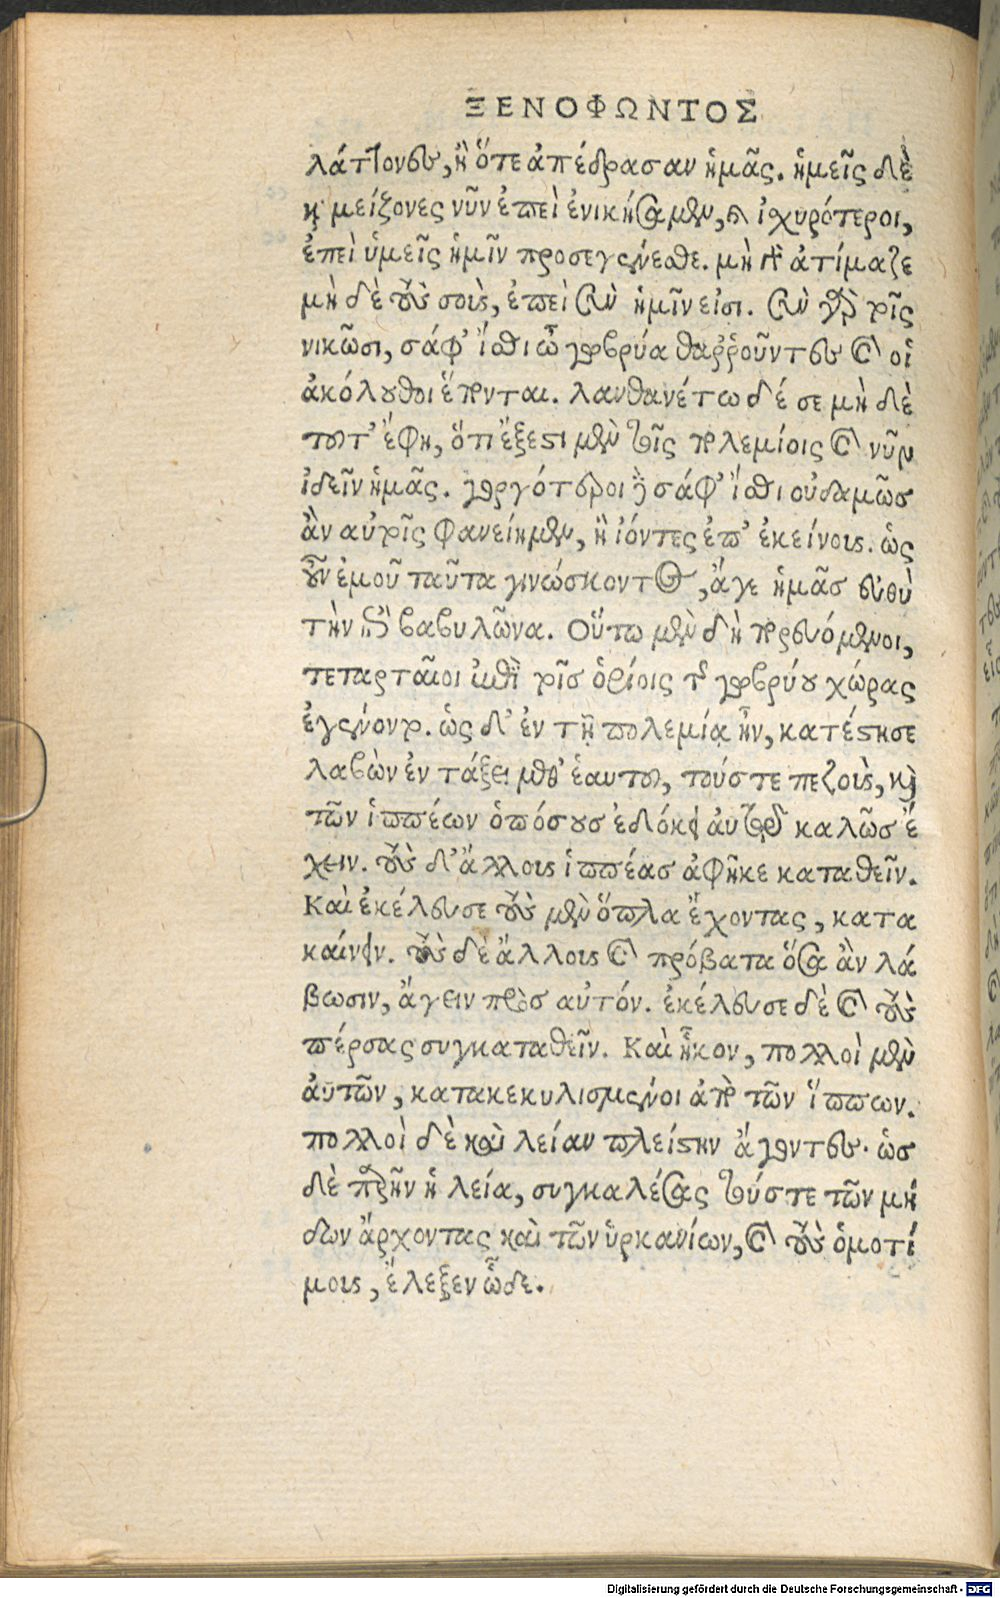 ΞΕΝΟΦΩΝΤΟΣ
λάττονες, ἢ ὅτε ἀπέδρασαν ἡμᾶς. ἡμεῖς δὲ
κ μείζονες νῦν ἐπεὶ ἐνικήσαμεν, καὶ ἰσχυρότεροι,
ἐπεὶ ὑμεῖς ἡμῖν προσεγένεσθε. μὴ ἀτίμαζε
μὴ δὲ τοὺς σοὺς, ἐπεὶ σὺν ἡμῖν εἰσι. σὺν γὰρ τοῖς
νικῶσι, σάφ' ἴσθι ὦ γωβρύα θαῤῥοῦντες καὶ οἱ
ἀκόλουθοι ἕπονται. λανθανέτω δέ σε μὴ δὲ
τοῦτ' ἔφη, ὅτι ἔξεστι μὲν τοῖς πολεμίοις καὶ νῦν
ἰδεῖν ἡμᾶς. γοργότεροι δὲ σάφ' ἴσθι οὐδαμῶς
ἂν αὐτοῖς φανείημεν, ἢ ἰόντες ἐπ' ἐκείνους. ὡς
οὖν ἐμοῦ ταῦτα γινώσκοντος, ἄγε ἡμᾶς εὐθὺ
τὴν ἐπὶ βαβυλῶνα. Οὕτω μὲν δὴ πορευόμενοι,
τεταρταῖοι πρὸς τοῖς ὁρίοις τῆς γωβρύου χώρας
ἐγένοντο. ὡς δ' ἐν τῇ πολεμίᾳ ἦν, κατέστησε
λαβὼν ἐν τάξει μεθ' ἑαυτοῦ, τούς τε πεζοὺς, καὶ
τῶν ἱππέων ὁπόσους ἐδόκει αὐτῷ καλῶς ἔ
χειν. τοὺς δ' ἄλλους ἱππέας ἀφῆκε καταθεῖν.
Καὶ ἐκέλευσε τοὺς μὲν ὅπλα ἔχοντας, κατα
καίνειν. τοὺς δὲ ἄλλους καὶ πρόβατα ὅσα ἂν λά
βωσιν, ἄγειν πρὸς αὐτόν. ἐκέλευσε δὲ καὶ τοὺς
πέρσας συγκαταθεῖν. Καὶ ἧκον, πολλοὶ μὲν
αὐτῶν, κατακεκυλισμένοι ἀπὸ τῶν ἵππων.
πολλοὶ δὲ καὶ λείαν πλείστην ἄγοντες. ὡς
δὲ παρῆν ἡ λεία, συγκαλέσας τούς τε τῶν μή
δων ἄρχοντας καὶ τῶν ὑρκανίων, καὶ τοὺς ὁμοτί
μους, ἔλεξεν ὧδε.
Digitalisierung gefördert durch die Deutsche Forschungsgemeinschaft - DFG